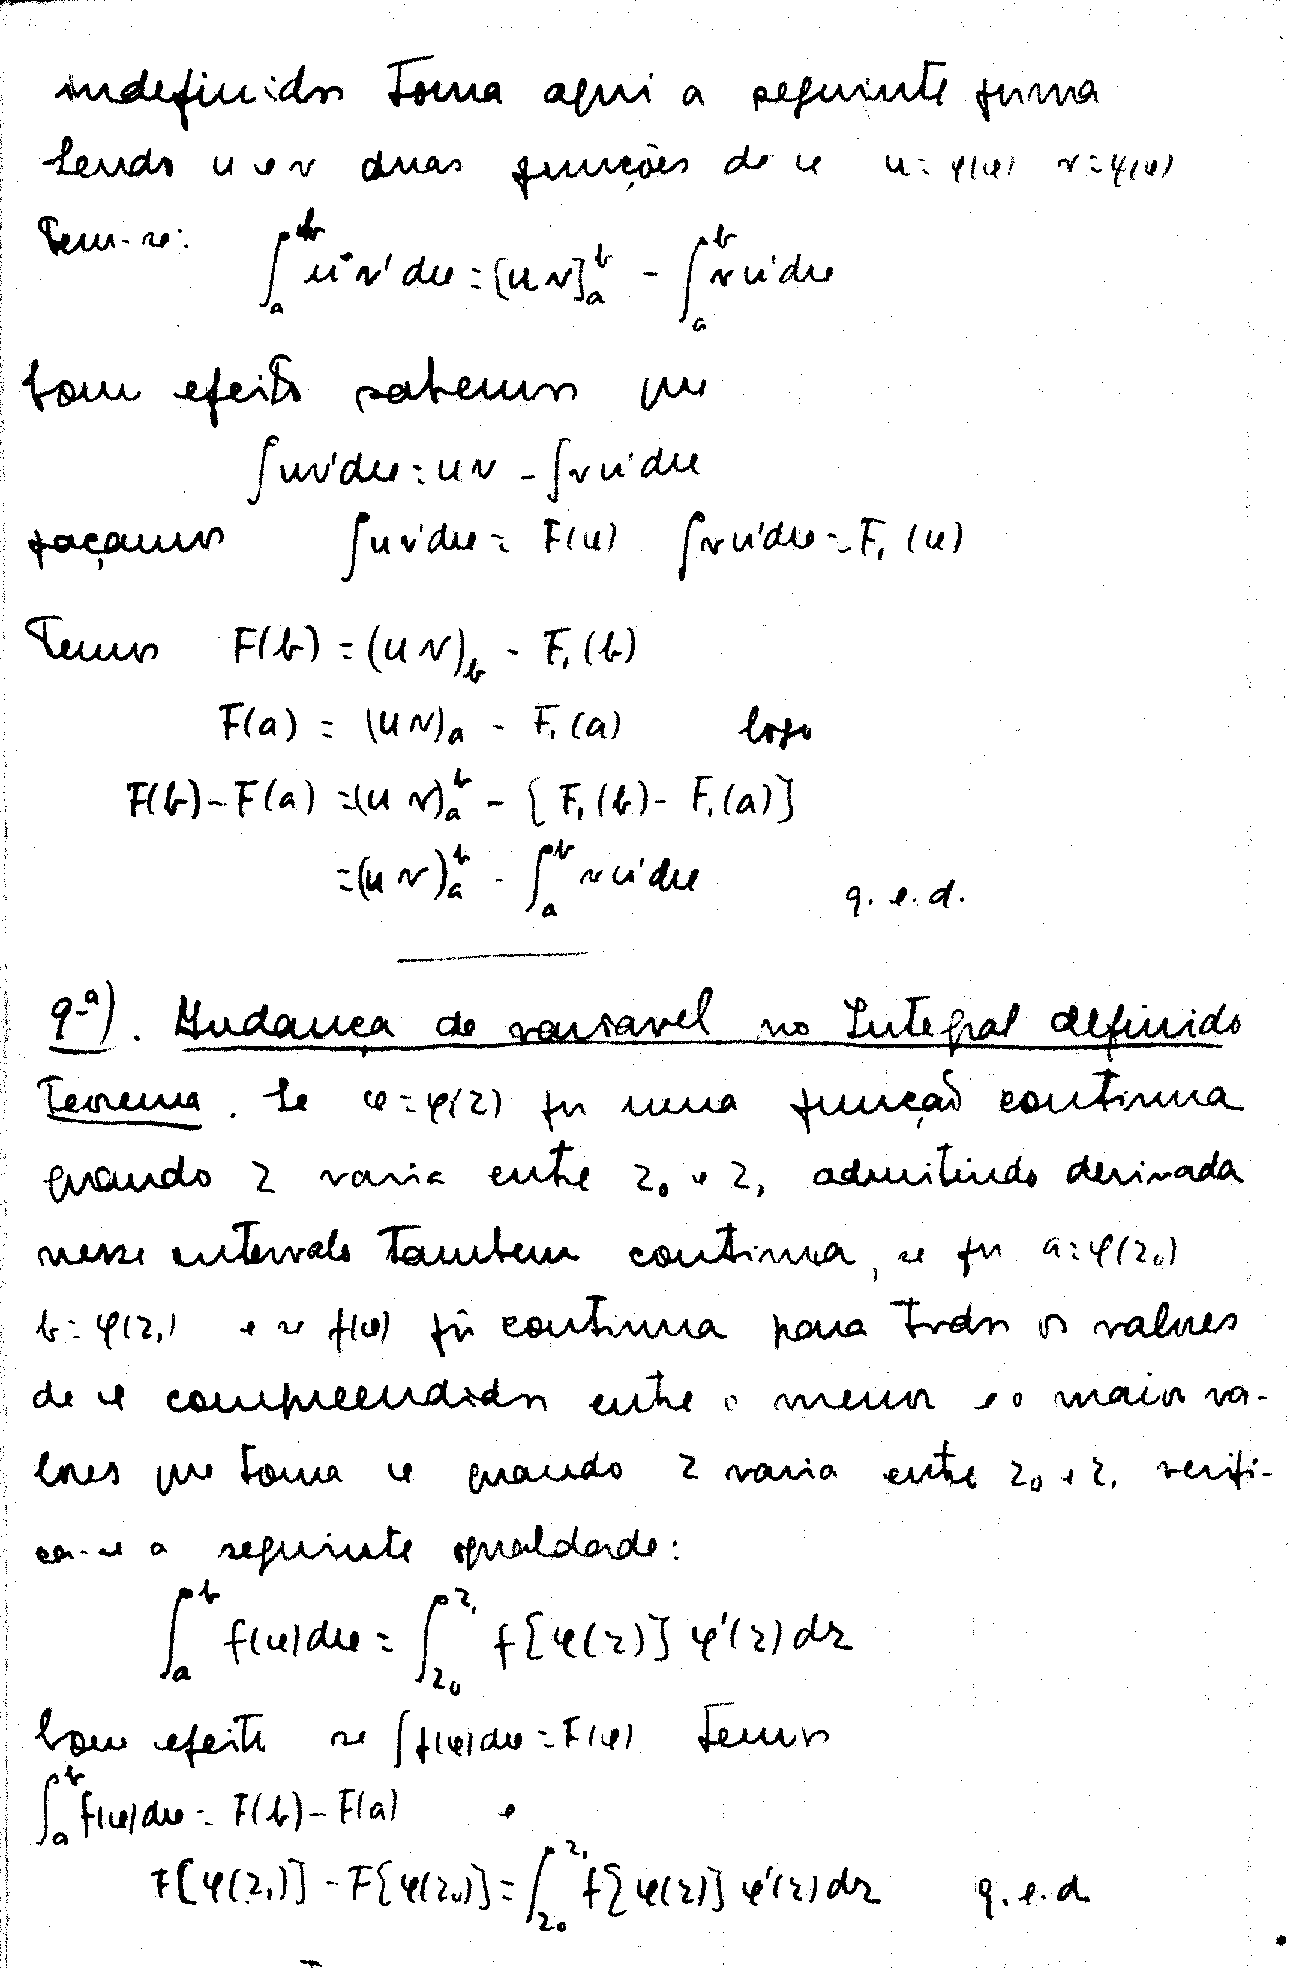 indefinidos toma aqui a seguinte forma
Sendo u e v duas funções de x u=φ(x) v=ψ(x)
Tem-se: ∫_a^b u v' dx = [u v]_a^b - ∫_a^b v u' dx
Com efeito sabemos que
∫uv'dx = uv - ∫vu'dx
façamos ∫uv'dx = F(x) ∫vu'dx = F₁(x)
Temos F(b) = (uv)_b - F₁(b)
F(a) = (uv)_a - F₁(a) logo
F(b)-F(a) = (uv)_a^b - [F₁(b)-F₁(a)]
= (uv)_a^b - ∫_a^b vu'dx q.e.d.
9-ª). Mudança de variavel no Integral definido
Teorema. Se x=φ(z) for uma função continua
quando z varia entre z₀ e z₁ admitindo derivada
nesse intervalo tambem continua, se for a=φ(z₀)
b=φ(z₁) e se f(x) fôr continua para todos os valores
de x compreendidos entre o menor e o maior va-
lores que toma x quando z varia entre z₀ e z₁ verifi-
ca-se a seguinte igualdade:
∫_a^b f(x)dx = ∫_{z₀}^{z₁} f[φ(z)] φ'(z)dz
Com efeito se ∫f(x)dx = F(x) temos
∫_a^b f(x)dx = F(b)-F(a) e
F[φ(z₁)] - F[φ(z₀)] = ∫_{z₀}^{z₁} f[φ(z)] φ'(z)dz q.e.d